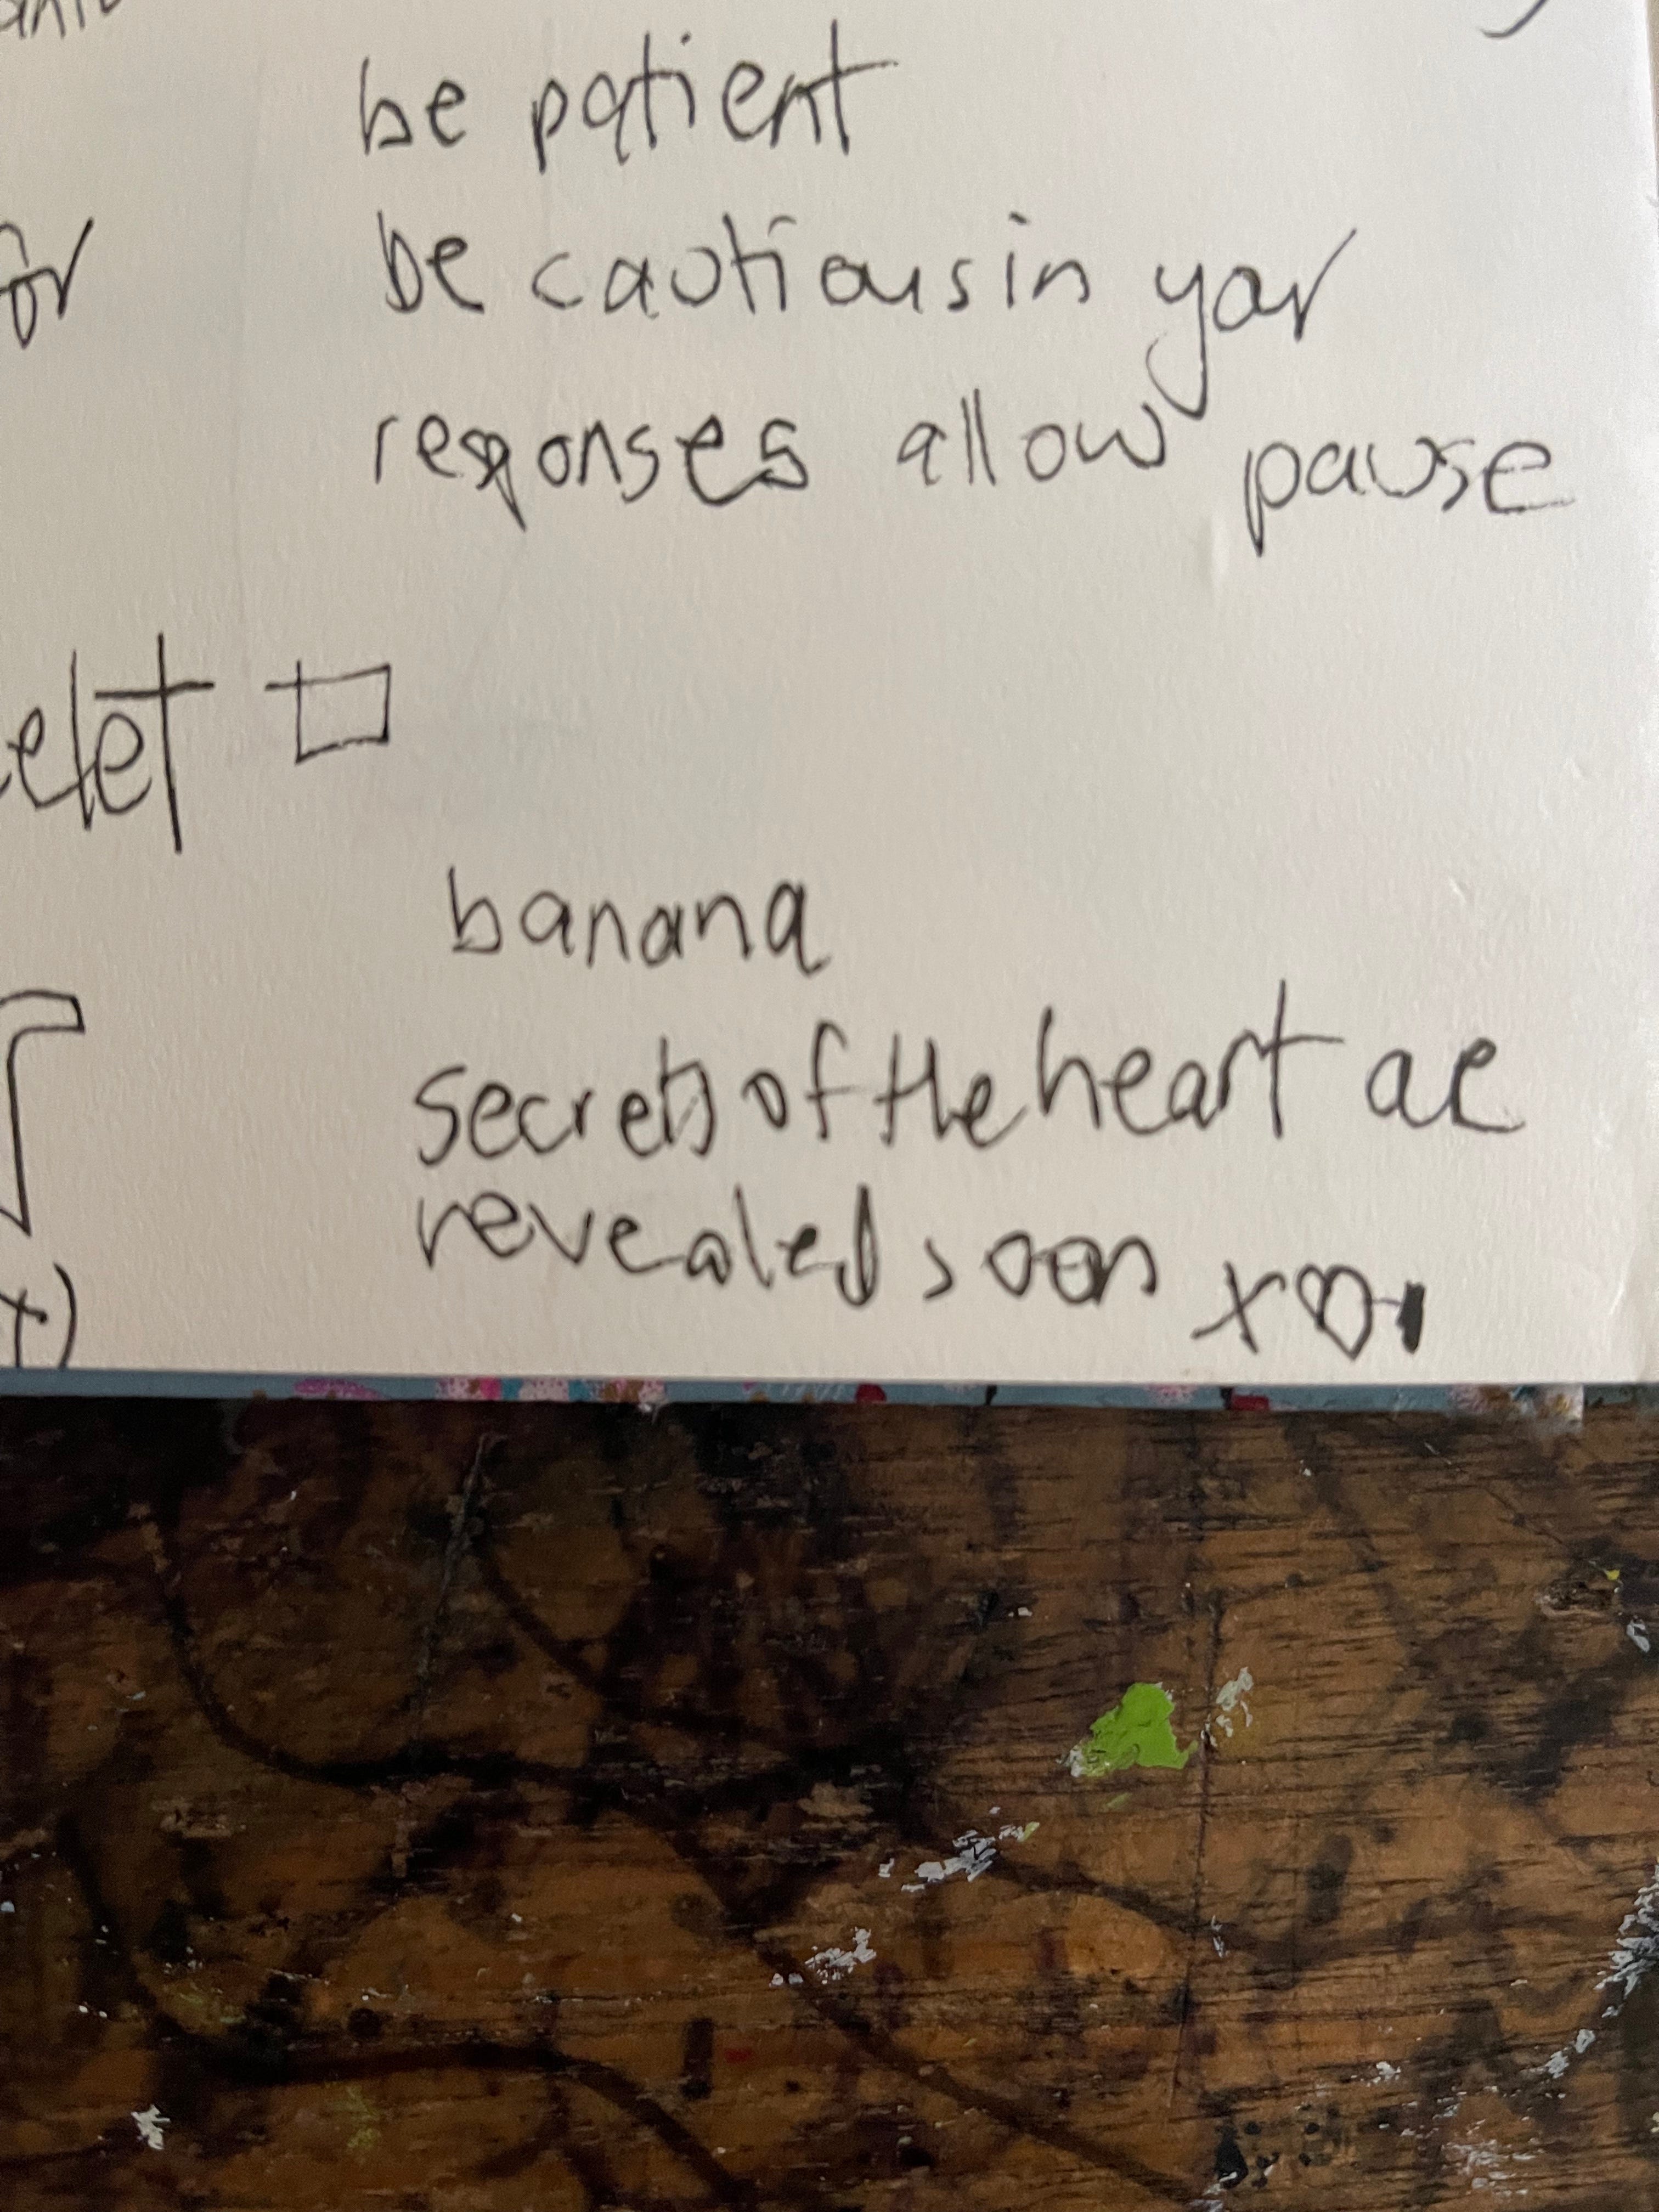 be patient
for be cautious in your
responses allow pause
elet
banana
secrets of the heart are
revealed soon x
x)